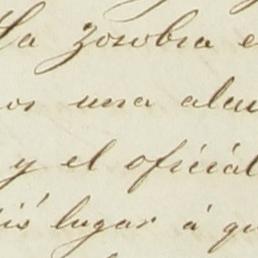 La zozobra e
os una alu
y el oficial
ió lugar á qu